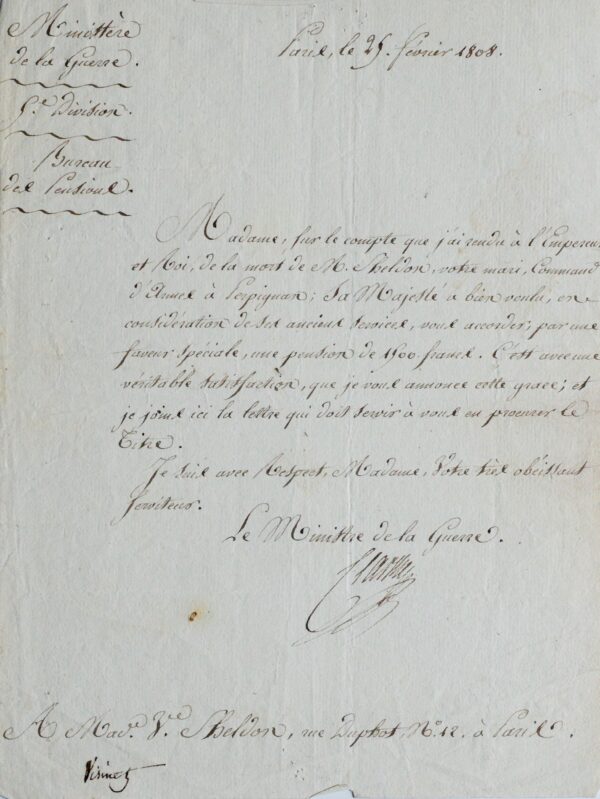 Ministère
de la Guerre.
5.e Division.
Bureau
des Pensions.
Paris, le 25. février 1808.
Madame, sur le compte que j'ai rendu à l'Empereur
et Roi, de la mort de M. Sheldon, votre mari, Command.t
d'Armes à Perpignan; Sa Majesté a bien voulu, en
considération de ses anciens services, vous accorder, par une
faveur spéciale, une pension de 1500 francs. C'est avec une
véritable satisfaction, que je vous annonce cette grace; et
je joins ici la lettre qui doit servir à vous en procurer le
Titre.
Je suis avec Respect, Madame, Votre très obéissant
serviteur.
Le Ministre de la Guerre.
Clarke
A Mad.e V.ve Sheldon, rue Duphot, N.o 12, à Paris.